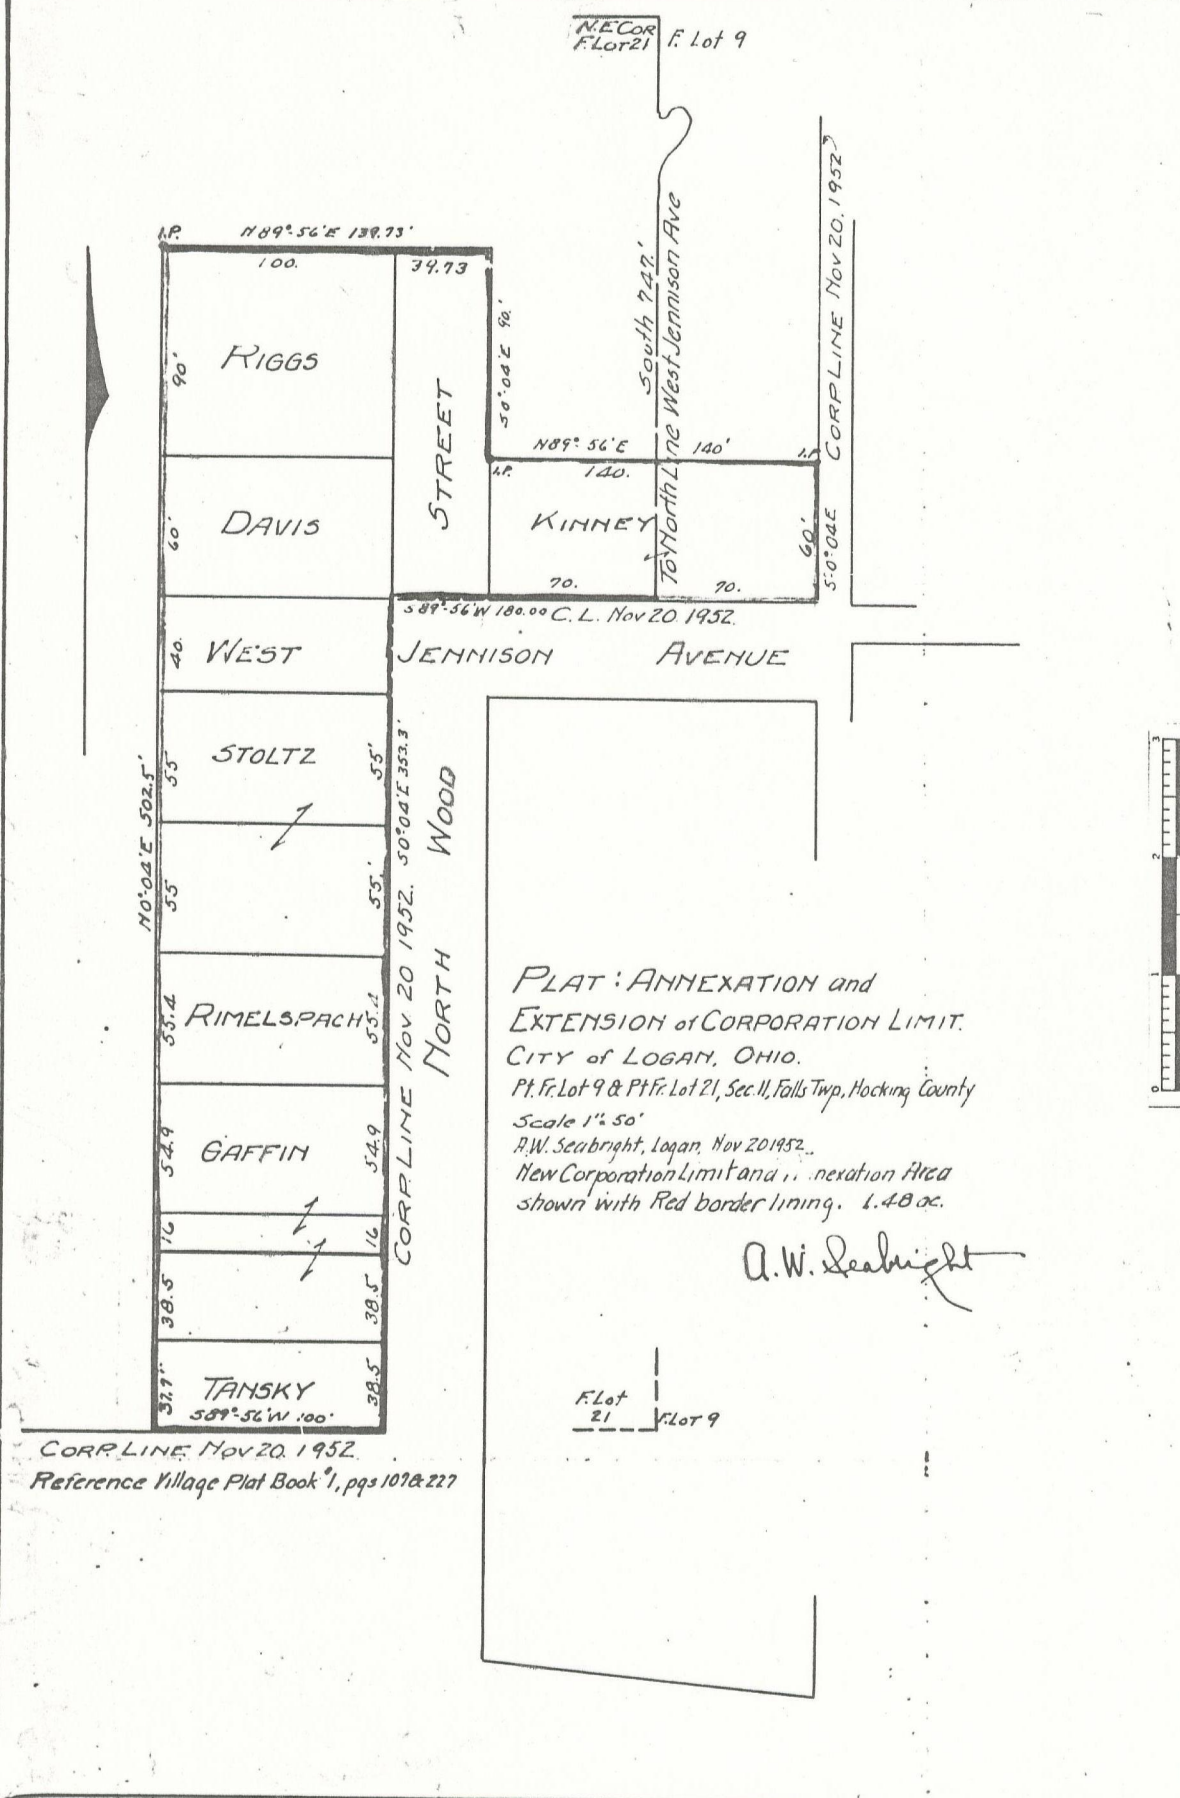 N.E COR
F. LOT 21
F. Lot 9
I.P.
N 89°-56'E 139.73'
100.
39.73
90'
RIGGS
S0°-04'E 90.'
STREET
South 747.'
To North Line West Jennison Ave
CORP LINE Nov 20. 1952
N 89°-56'E 140'
I.P.
140.
I.P.
60'
DAVIS
KINNEY
60'
S.0°04E
70.
70.
S 89°-56'W 180.00 C. L. Nov 20. 1952.
40.
WEST JENNISON AVENUE
55
STOLTZ
55'
N0°-04'E 502.5'
CORP. LINE Nov 20 1952. S0°04'E 353.3'
NORTH WOOD
55
55.'
55.4
RIMELSPACH
55.4
54.9
GAFFIN
54.9
16
16
38.5
38.5
TANSKY
38.5
S89°-56'W 100'
CORP. LINE Nov 20. 1952
Reference Village Plat Book #1, pgs 107 & 227
PLAT: ANNEXATION and
EXTENSION of CORPORATION LIMIT.
CITY of LOGAN, OHIO.
Pt. Fr. Lot 9 & Pt Fr. Lot 21, Sec. 11, Falls Twp, Hocking County
Scale 1" = 50'
A.W. Seabright, Logan, Nov 20 1952.
New Corporation Limit and nexation Area
shown with Red border lining. 1.48 ac.
A.W. Seabright
F. Lot
21
F. LOT 9
3
2
1
0